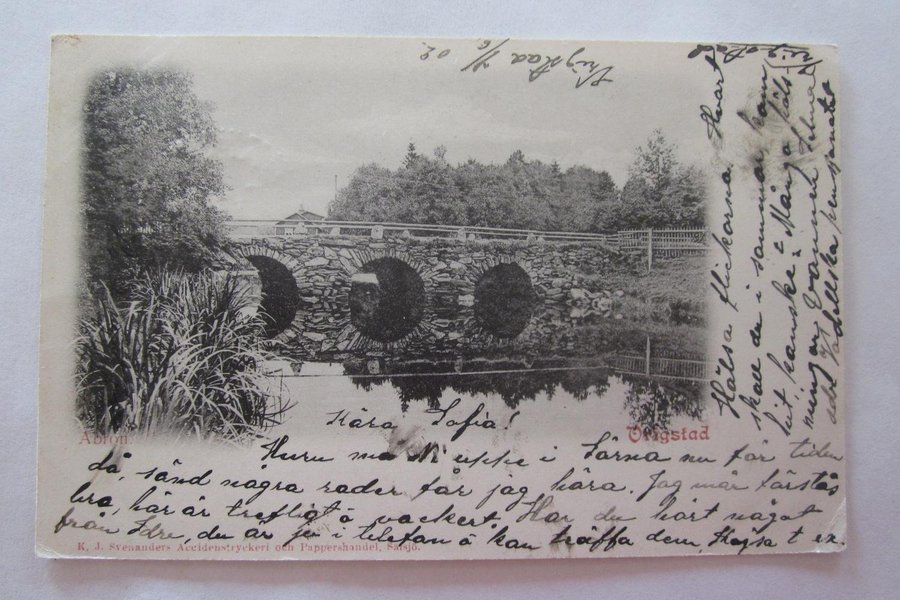 Vrigstad 7/6 02.
Åbron.
Vrigstad
Kära Sofia!
Huru må Ni uppe i Särna nu för tiden
då, sänd några rader får jag höra. Jag mår förstås
bra, här är trefligt å vackert. Har du hört något
från Idre, du är ju i telefon å kan träffa dem,
K. J. Svenanders Accidenstryckeri och Pappershandel, Säfsjö.
Hälsa flickorna Hvart
skall du i sommar kom
hit kanske = Många häls-
ningar Vännen